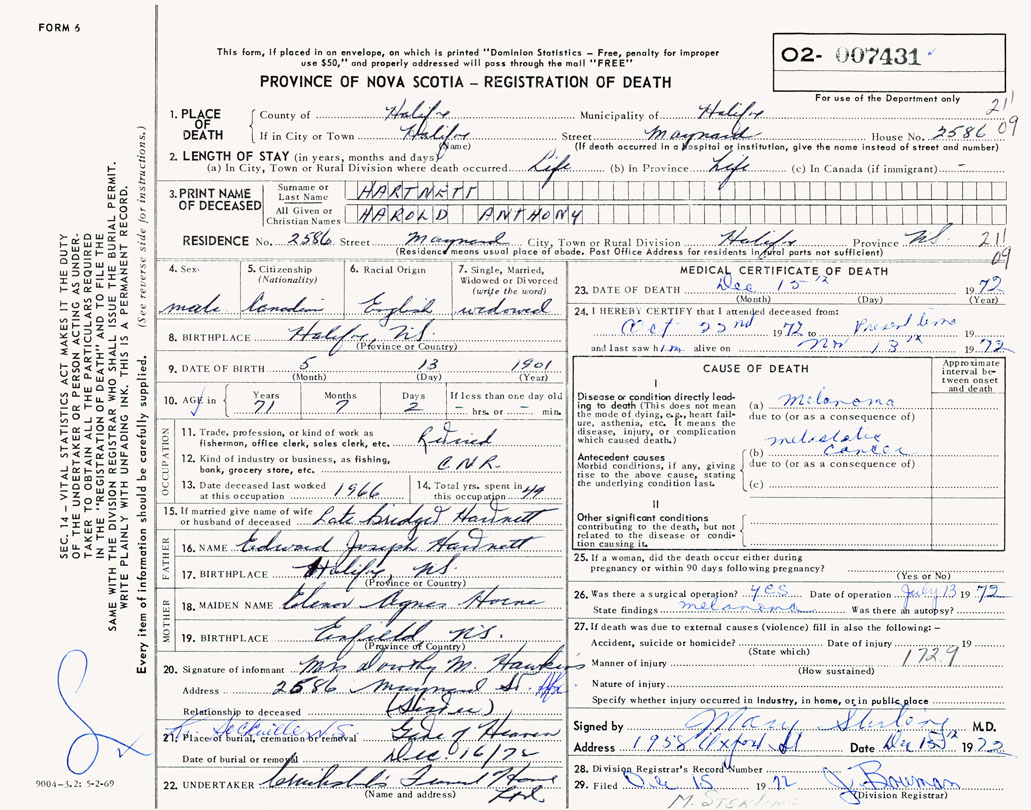 FORM 6
This form, if placed in an envelope, on which is printed "Dominion Statistics – Free, penalty for improper
use $50," and properly addressed will pass through the mail "FREE"
PROVINCE OF NOVA SCOTIA – REGISTRATION OF DEATH
O2- 007431
For use of the Department only
211
09
1. PLACE OF DEATH
County of Halifx Municipality of Halifx
If in City or Town Halifx Street Maynard House No. 2586
(Name) (If death occurred in a hospital or institution, give the name instead of street and number)
2. LENGTH OF STAY (in years, months and days)
(a) In City, Town or Rural Division where death occurred Life (b) In Province Life (c) In Canada (if immigrant) –
3. PRINT NAME OF DECEASED
Surname or Last Name HARTNETT
All Given or Christian Names HAROLD ANTHONY
RESIDENCE No. 2586 Street Maynard City, Town or Rural Division Halifx Province N.S. 211
(Residence means usual place of abode. Post Office Address for residents in rural parts not sufficient) 09
4. Sex male
5. Citizenship (Nationality) Canadian
6. Racial Origin English
7. Single, Married, Widowed or Divorced (write the word) widowed
8. BIRTHPLACE Halifx, N.S.
(Province or Country)
9. DATE OF BIRTH 5 13 1901
(Month) (Day) (Year)
10. AGE in Years 71 Months 7 Days 2 If less than one day old – hrs. or – min.
OCCUPATION
11. Trade, profession, or kind of work as fisherman, office clerk, sales clerk, etc. Retired
12. Kind of industry or business, as fishing, bank, grocery store, etc. C.N.R.
13. Date deceased last worked at this occupation 1966
14. Total yrs. spent in this occupation 44
15. If married give name of wife or husband of deceased Late Bridget Hartnett
FATHER
16. NAME Edward Joseph Hartnett
17. BIRTHPLACE Halifx, N.S.
(Province or Country)
MOTHER
18. MAIDEN NAME Elenor Agnes Horne
19. BIRTHPLACE Enfield, N.S.
(Province of Country)
20. Signature of informant Mrs Dorothy M. Hawkins
Address 2586 Maynard St. Hfx
Relationship to deceased (Sister)
L. Sackville N.S.
21. Place of burial, cremation or removal Gate of Heaven
Date of burial or removal Dec. 16/72
22. UNDERTAKER Cruikshank's Funeral Home Ltd
(Name and address)
MEDICAL CERTIFICATE OF DEATH
23. DATE OF DEATH Dec 15th 1972
(Month) (Day) (Year)
24. I HEREBY CERTIFY that I attended deceased from:
Oct 22nd 1972 to Present time
and last saw him alive on Nov 13th 1972
CAUSE OF DEATH
Approximate interval between onset and death
I
Disease or condition directly leading to death (This does not mean the mode of dying, e.g., heart failure, asthenia, etc. It means the disease, injury, or complication which caused death.)
(a) Melanoma
due to (or as a consequence of)
Antecedent causes
Morbid conditions, if any, giving rise to the above cause, stating the underlying condition last.
(b) metastatic cancer
due to (or as a consequence of)
(c)
II
Other significant conditions
contributing to the death, but not related to the disease or condition causing it.
25. If a woman, did the death occur either during
pregnancy or within 90 days following pregnancy?
(Yes or No)
26. Was there a surgical operation? yes Date of operation July 13 1972
State findings melanoma Was there an autopsy?
27. If death was due to external causes (violence) fill in also the following: –
Accident, suicide or homicide? Date of injury 19
(State which) 172.9
Manner of injury
(How sustained)
Nature of injury
Specify whether injury occurred in industry, in home, or in public place
Signed by Mary M.D.
Address 1958 Oxford St Date Dec 15th 1972
28. Division Registrar's Record Number
29. Filed Dec 15 1972 J. Bowman
(Division Registrar)
SEC. 14 – VITAL STATISTICS ACT MAKES IT THE DUTY
OF THE UNDERTAKER OR PERSON ACTING AS UNDER-
TAKER TO OBTAIN ALL THE PARTICULARS REQUIRED
IN THE "REGISTRATION OF DEATH" AND TO FILE THE
SAME WITH THE DIVISION REGISTRAR WHO SHALL ISSUE THE BURIAL PERMIT.
WRITE PLAINLY WITH UNFADING INK. THIS IS A PERMANENT RECORD.
Every item of information should be carefully supplied. (See reverse side for instructions.)
9004–3.2: 5-2-69